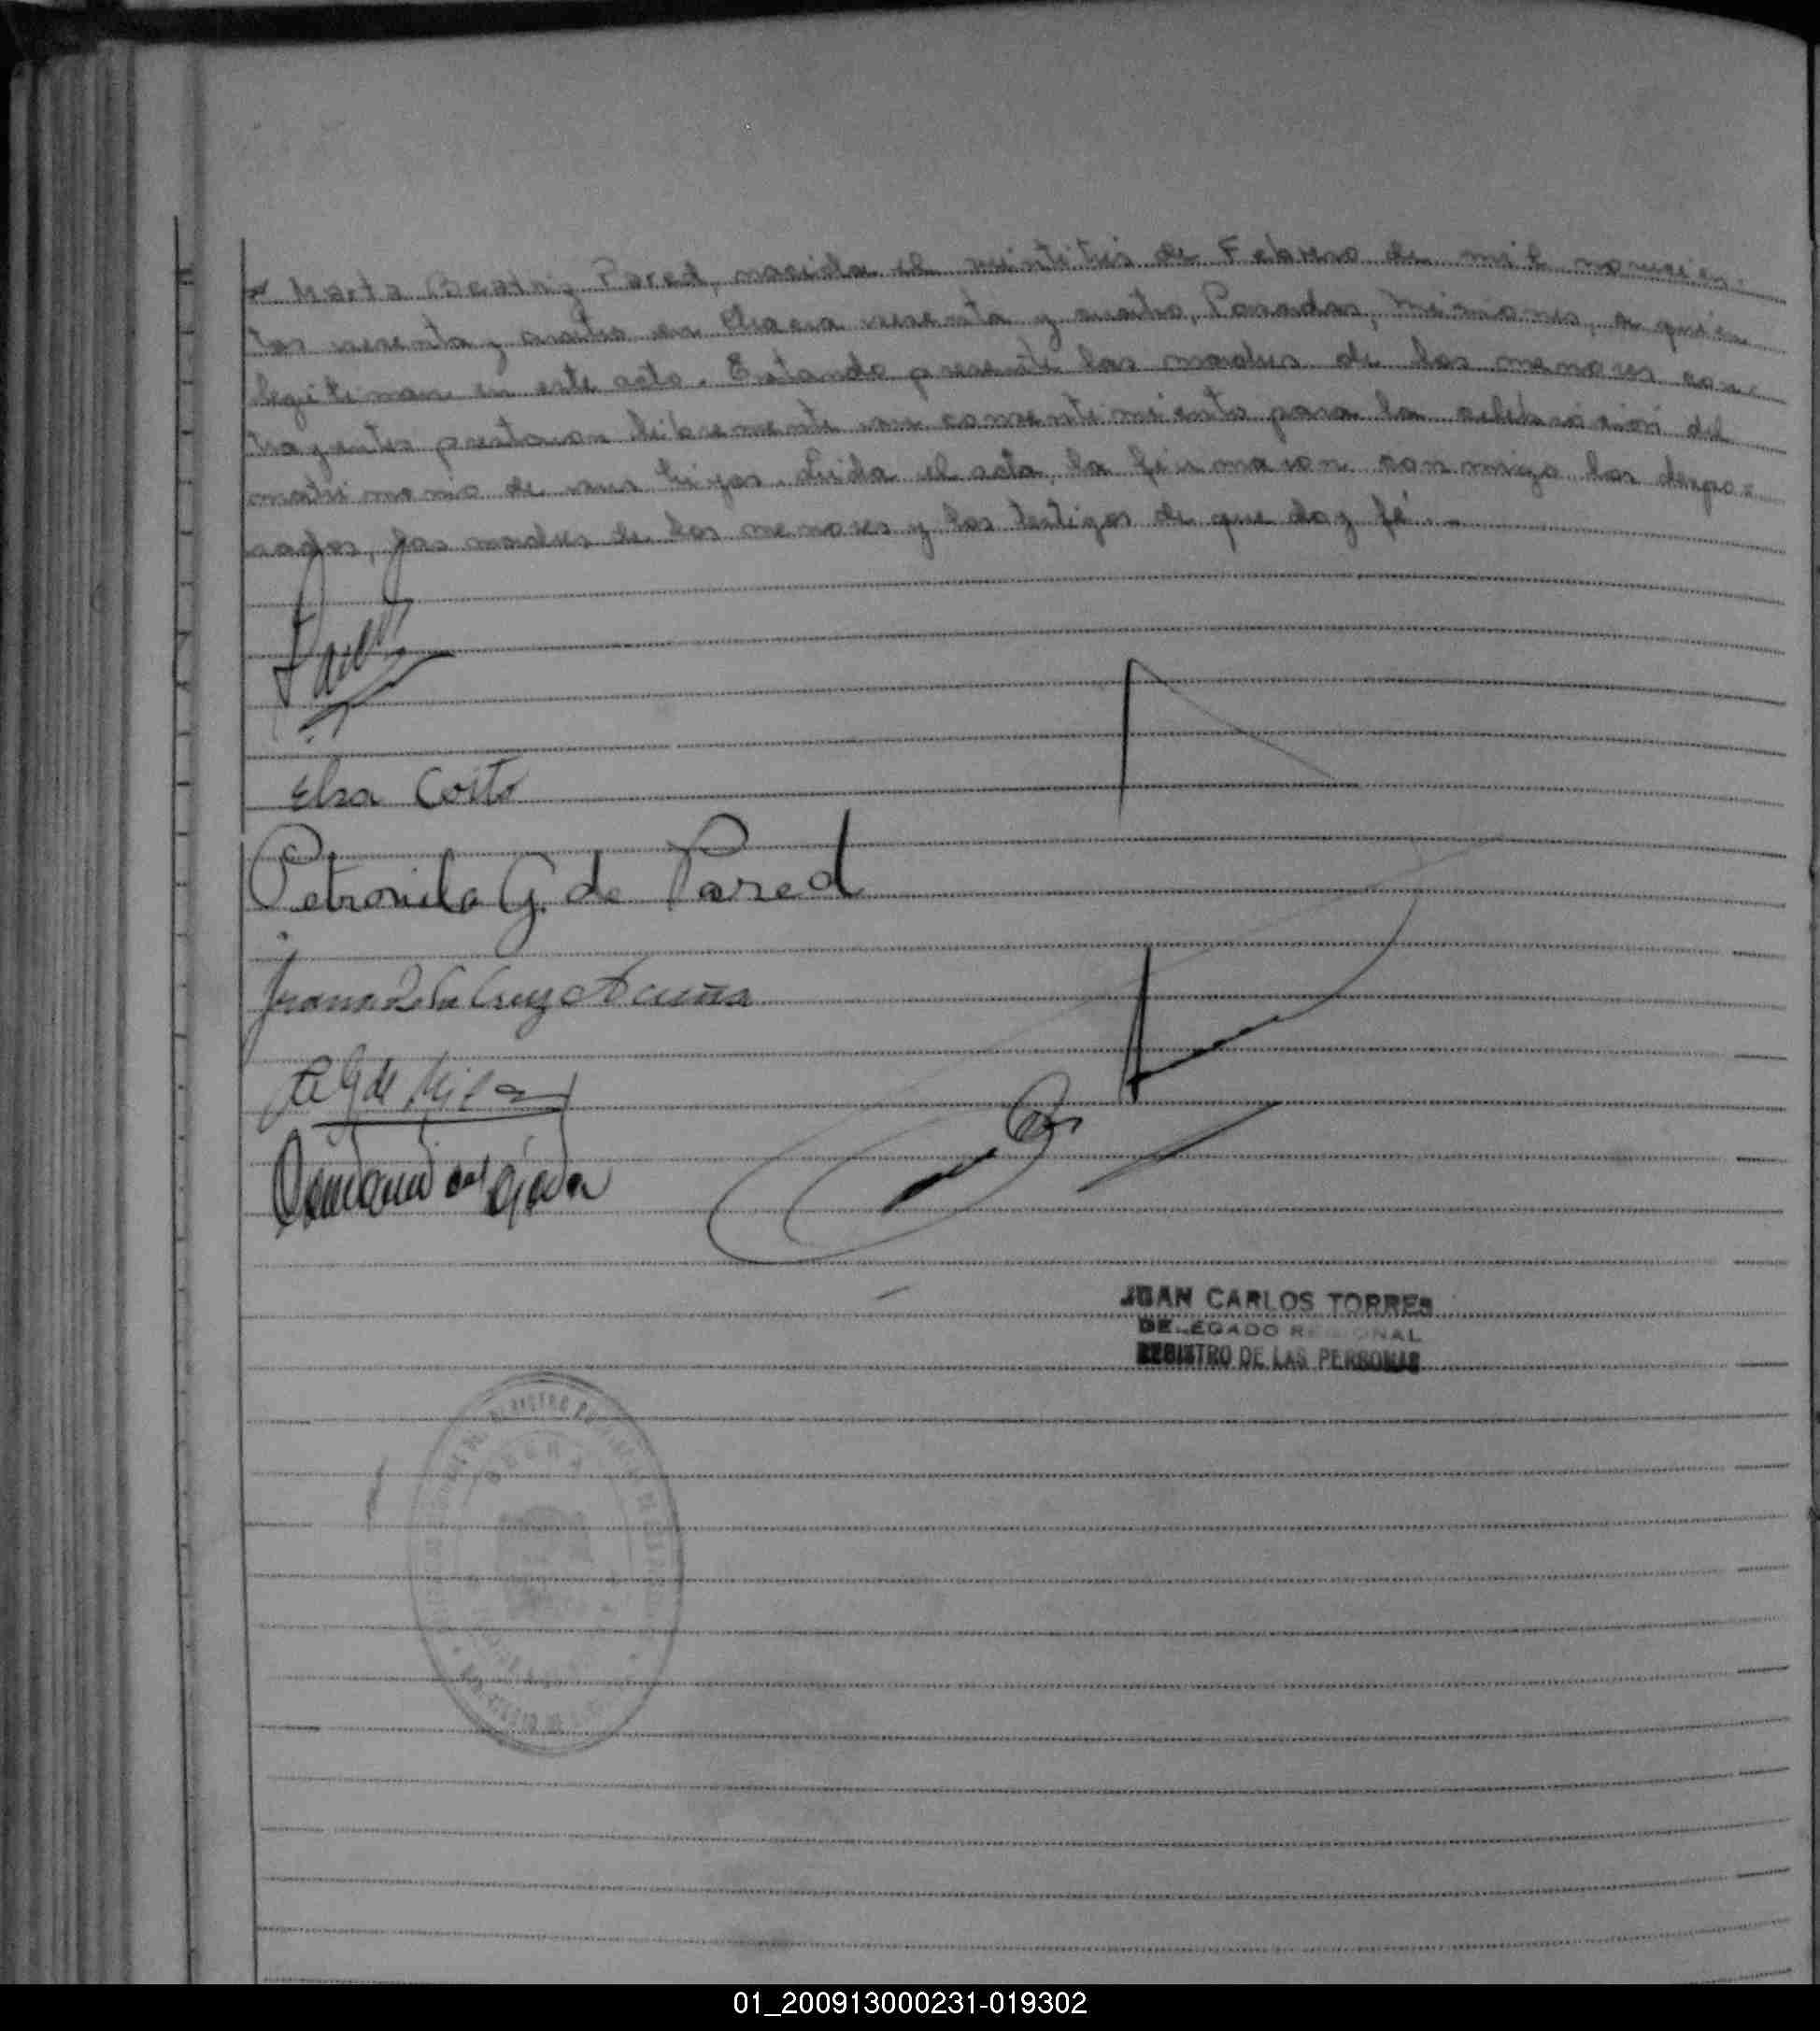 Marta Beatriz Pared, nacida el veintitrés de Febrero de mil novecien-
tos sesenta y cuatro en Chacra sesenta y cuatro, Posadas, Misiones, a quien
legitiman en este acto. Estando presente las madres de los menores con-
trayentes prestaron libremente su consentimiento para la celebración del
matrimonio de sus hijos. Leida el acta, la firmaron conmigo los despo-
sados, las madres de los menores y los testigos de que doy fé.-
Elsa Coito
Petronila G. de Pared
Juana de la Cruz Acuña
JUAN CARLOS TORRES
DELEGADO REGIONAL
REGISTRO DE LAS PERSONAS
01_200913000231-019302